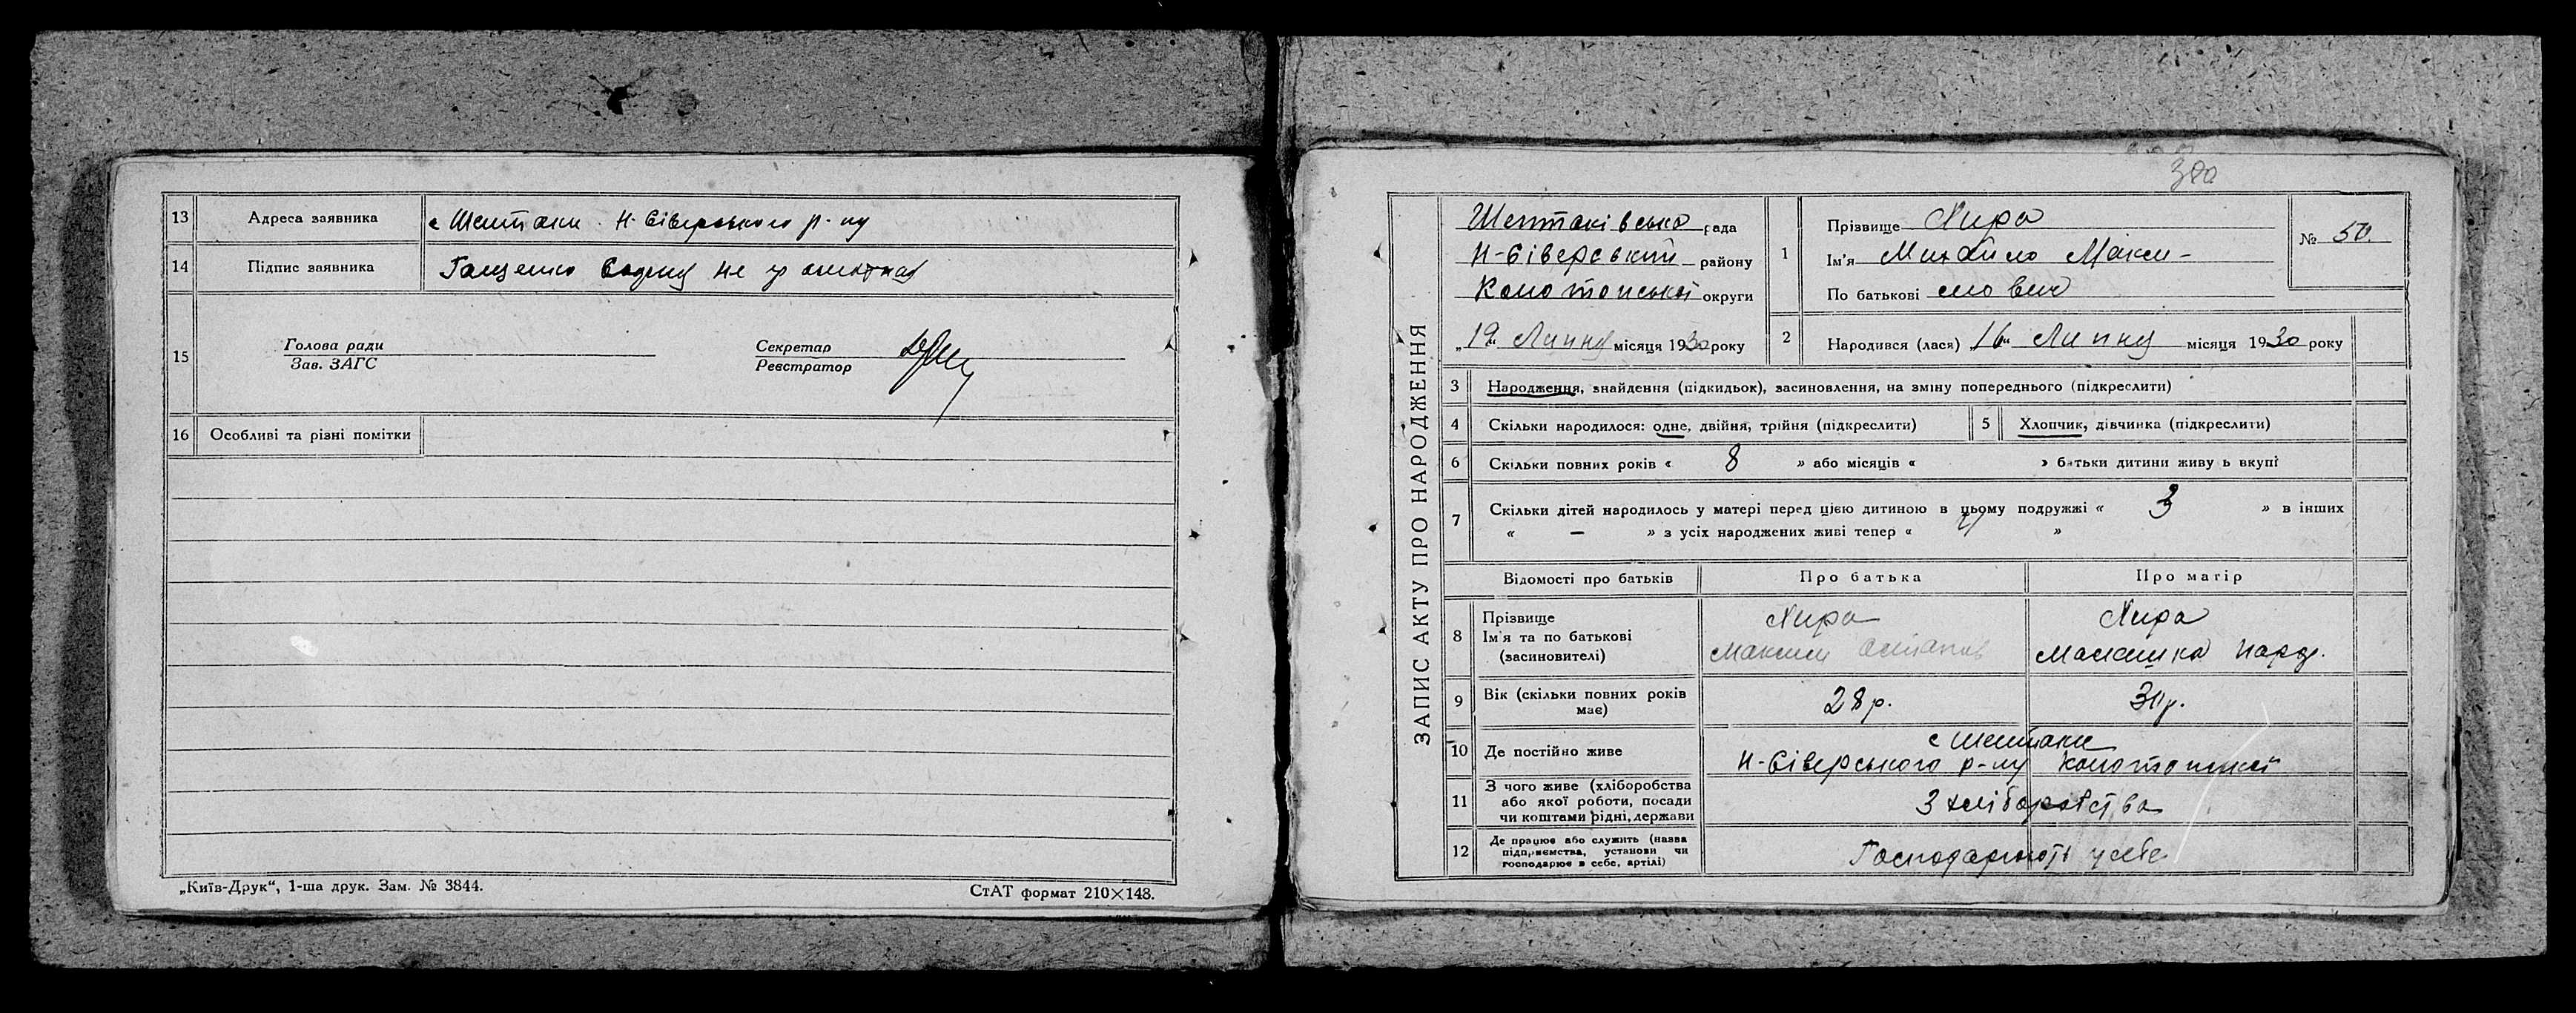 13 Адреса заявника с Шептаки Н-Сіверського р-ну
14 Підпис заявника Гащенко не
15 Голова ради
Зав. ЗАГС
Секретар
Реєстратор
16 Особливі та різні помітки
„Київ-Друк“, 1-ша друк. Зам. № 3844.
СтАТ формат 210×148.
ЗАПИС АКТУ ПРО НАРОДЖЕННЯ
Шептаківська рада
Н-Сіверський району
Конотопської округи
„19“ Липня місяця 1930 року
1 Прізвище Хира
Ім'я Михайло Макси-
По батькові мович
№ 50.
2 Народився (лася) „16“ Липня місяця 1930 року
3 Народження, знайдення (підкидьок), засиновлення, на зміну попереднього (підкреслити)
4 Скільки народилося: одне, двійня, трійня (підкреслити)
5 Хлопчик, дівчинка (підкреслити)
6 Скільки повних років « 8 » або місяців « » батьки дитини живу ь вкупі
7 Скільки дітей народилось у матері перед цією дитиною в цьому подружжі « 3 » в інших
« — » з усіх народжених живі тепер « »
Відомості про батьків Про батька Про матір
8 Прізвище
Ім'я та по батькові
(засиновителі)
Хира
Максим Остапов
Хира
9 Вік (скільки повних років
має)
28 р.
10 Де постійно живе
с Шептаки
Н-Сіверського р-ну Конотопської
11 З чого живе (хліборобства
або якої роботи, посади
чи коштами рідні, держави
З хліборобства
12 Де працює або служить (назва
підприємства, установи чи
господарює в себе, артілі)
Господарюють у себе